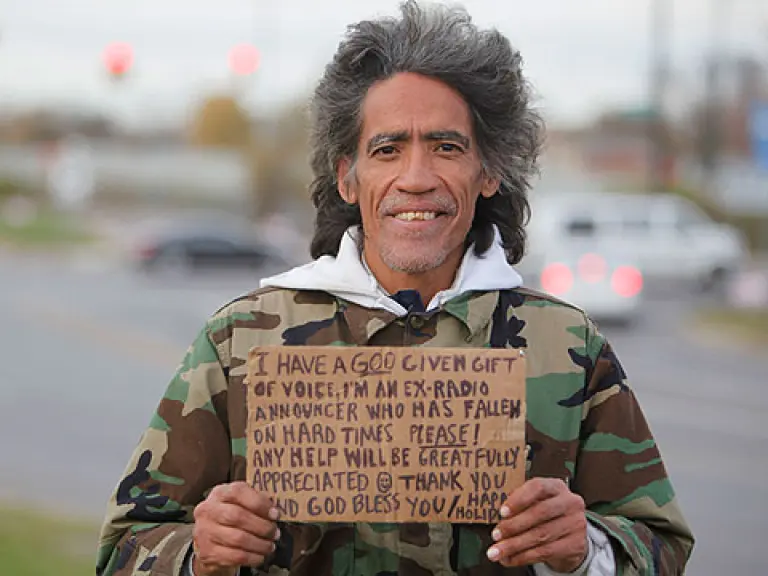 I HAVE A GOD GIVEN GIFT
OF VOICE, I'M AN EX-RADIO
ANNOUNCER WHO HAS FALLEN
ON HARD TIMES PLEASE!
ANY HELP WILL BE GREATFULLY
APPRECIATED ☺ THANK YOU
AND GOD BLESS YOU/HAPP
HOLID